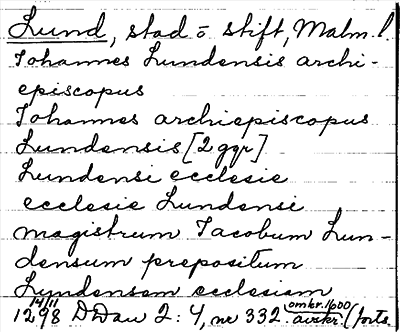 Lund, stad o stift, Malm. l.
Johannes Lundensis archi-
episcopus
Johannes archiepiscopus
Lundensis [2 ggr]
Lundensi ecclesie
ecclesie Lundensi
magistrum Jacobum Lun-
densum prepositum
Lundensem ecclesiam
14/11 omkr. 1600
1298 DDan 2:4, nr 332 avskr. (forts.